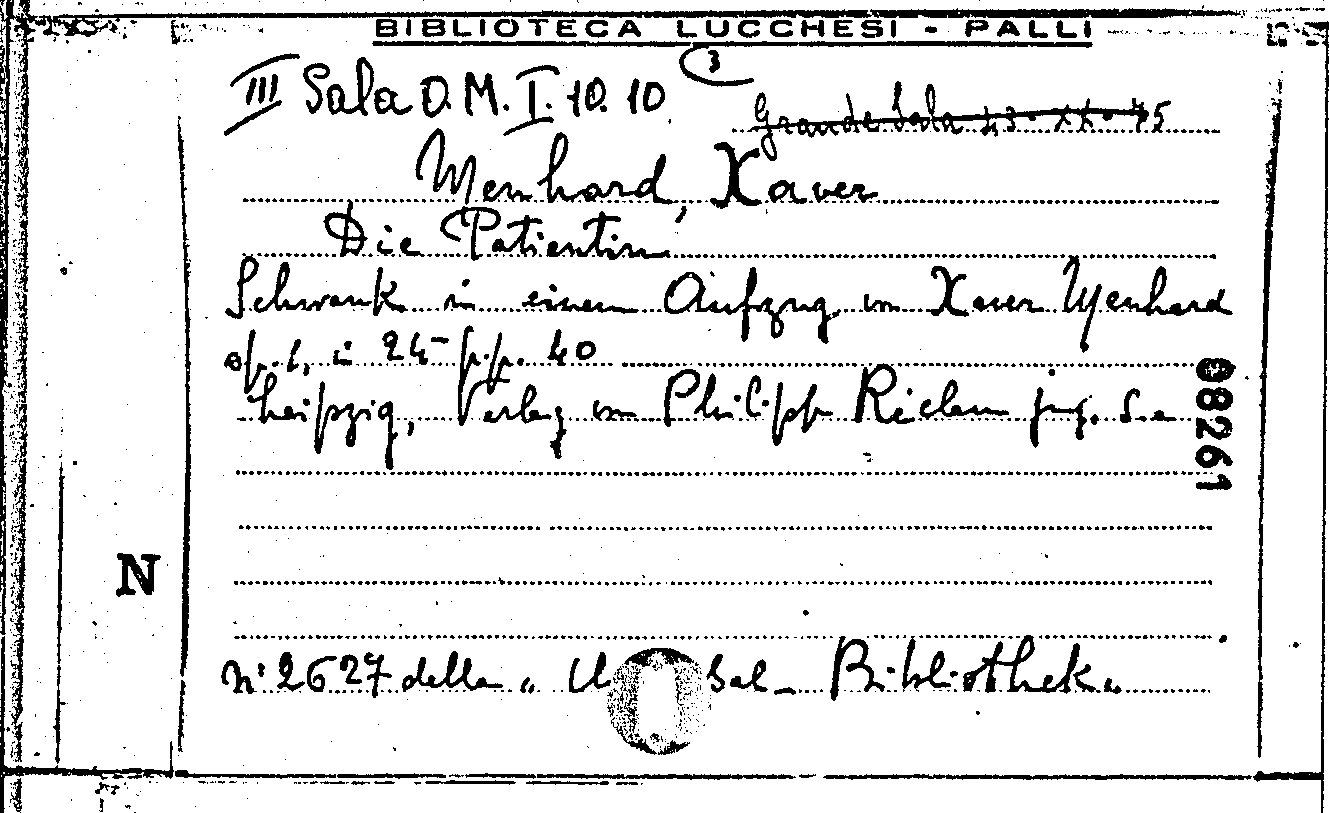 BIBLIOTECA LUCCHESI - PALLI
III Sala O. M. I. 10. 10 (3
Grande Sala 43 - XX - 75
Menhard, Xaver
Die Patientin
Schwank in einem Aufzug von Xaver Menhard
op. 1, in 24- pp. 40
Leipzig, Verlag von Philipp Reclam jug. s. a
08261
N
n. 2627 della " U sal - Bibliothek "